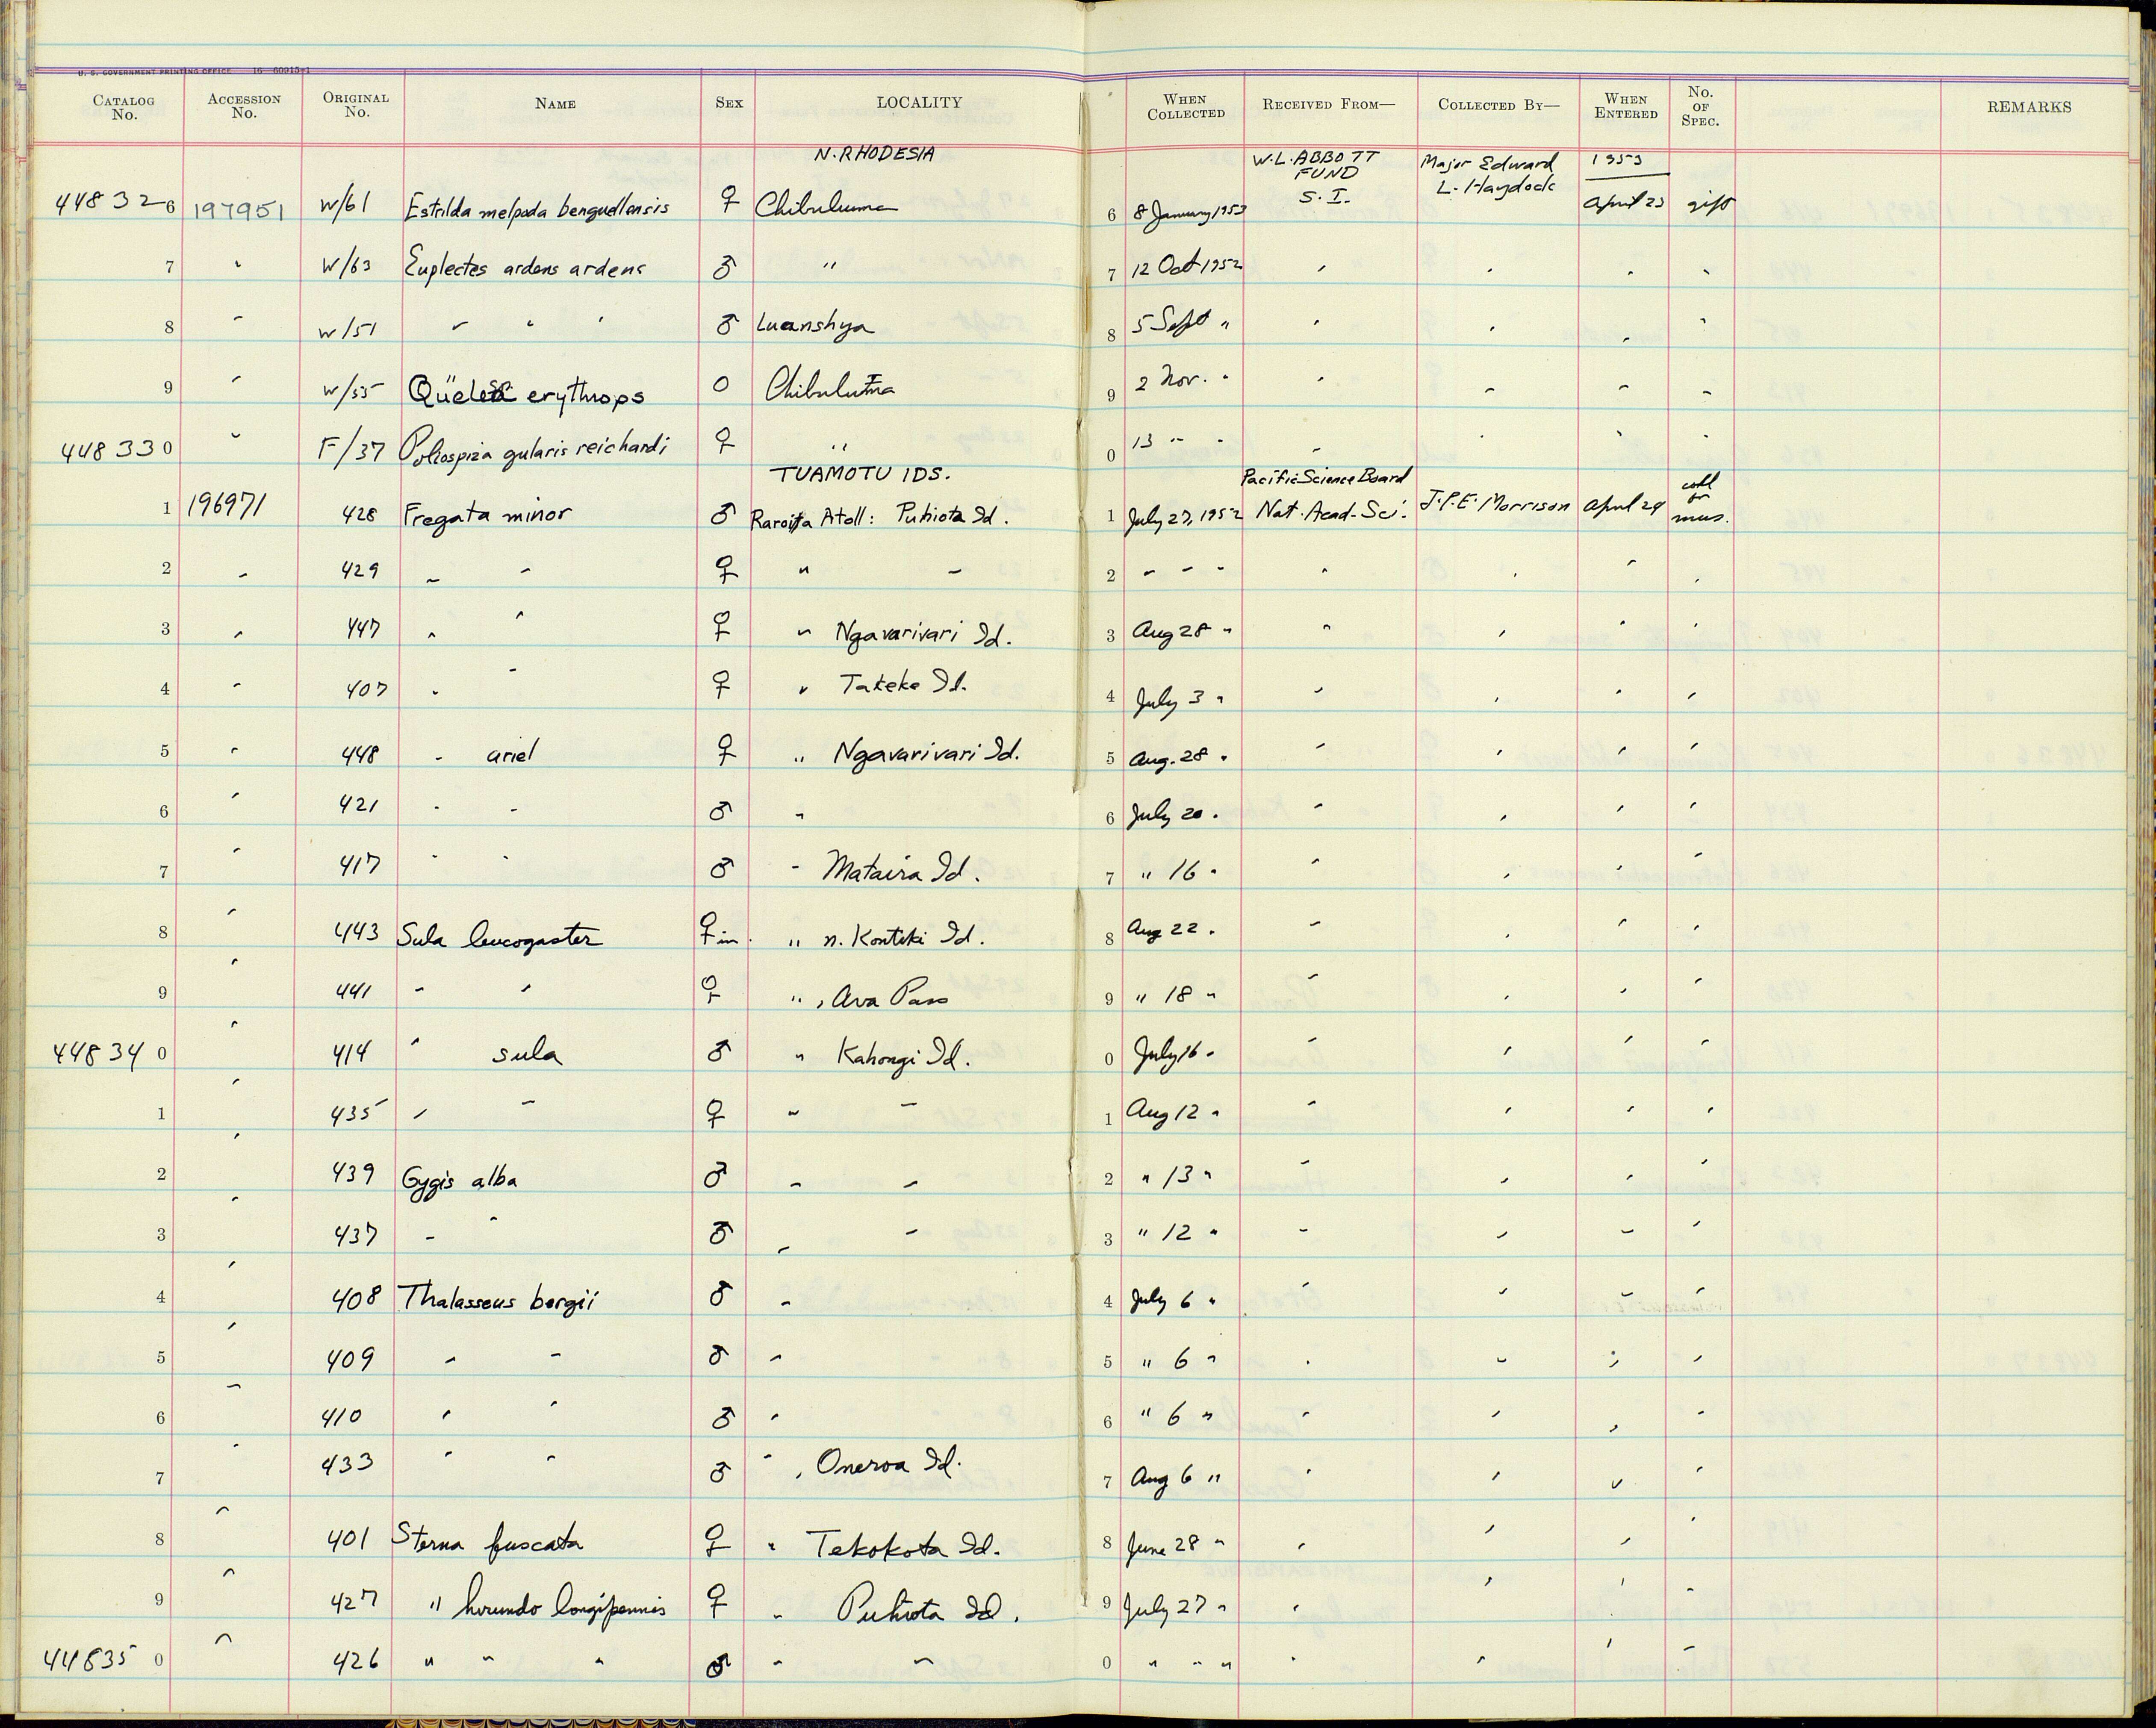 U. S. GOVERNMENT PRINTING OFFICE 16—60915-1
CATALOG No. ACCESSION No. ORIGINAL No. NAME SEX LOCALITY WHEN COLLECTED RECEIVED FROM— COLLECTED BY— WHEN ENTERED No. OF SPEC. REMARKS
N. RHODESIA W.L. ABBOTT FUND S. I. Major Edward L. Haydock 1953
448326 197951 W/61 Estrilda melpoda benguellensis ♀ Chibuluma 6 8 January 1953 April 23 gift
7 " W/63 Euplectes ardens ardens ♂ " 7 12 Oct 1952 " " " "
8 " W/51 " " " ♂ Luanshya 8 5 Sept " " " " "
9 " W/55 erythrops O Chibuluma 9 2 Nov. " " " " "
448330 " F/37 Poliospiza gularis reichardi ♀ " 0 13 " " " " " "
TUAMOTU IDS. Pacific Science Board
1 196971 428 Fregata minor ♂ Raroia Atoll: Puhiota Id. 1 July 27, 1952 Nat. Acad. Sci. J.P.E. Morrison April 24 coll for mus.
2 " 429 " " ♀ " " 2 " " " " " " "
3 " 447 " " ♀ " Ngavarivari Id. 3 Aug 28 " " " " "
4 " 407 " " ♀ " Takeke Id. 4 July 3 " " " " "
5 " 448 " ariel ♀ " Ngavarivari Id. 5 Aug. 28 " " " " "
6 " 421 " " ♂ " 6 July 20 " " " " "
7 " 417 " " ♂ " Mataira Id. 7 " 16 " " " " "
8 " 443 Sula leucogaster ♀ im. " n. Kontiki Id. 8 Aug 22 " " " " "
9 " 441 " " ♀ ", Ava Pass 9 " 18 " " " " "
448340 " 414 " sula ♂ " Kahongi Id. 0 July 16 " " " " "
1 " 435 " " ♀ " " 1 Aug 12 " " " " "
2 " 439 Gygis alba ♂ " " 2 " 13 " " " " "
3 " 437 " " ♂ " " 3 " 12 " " " " "
4 " 408 Thalasseus bergii ♂ " 4 July 6 " " " " "
5 " 409 " " ♂ " 5 " 6 " " " " "
6 " 410 " " ♂ " 6 " 6 " " " " "
7 " 433 " " ♂ ", Oneroa Id. 7 Aug 6 " " " " "
8 " 401 Sterna fuscata ♀ " Tekokota Id. 8 June 28 " " " " "
9 " 427 " hirundo longipennis ♀ " Puhiota Id. 9 July 27 " " " " "
448350 " 426 " " " ♂ " " 0 " " " " " " "